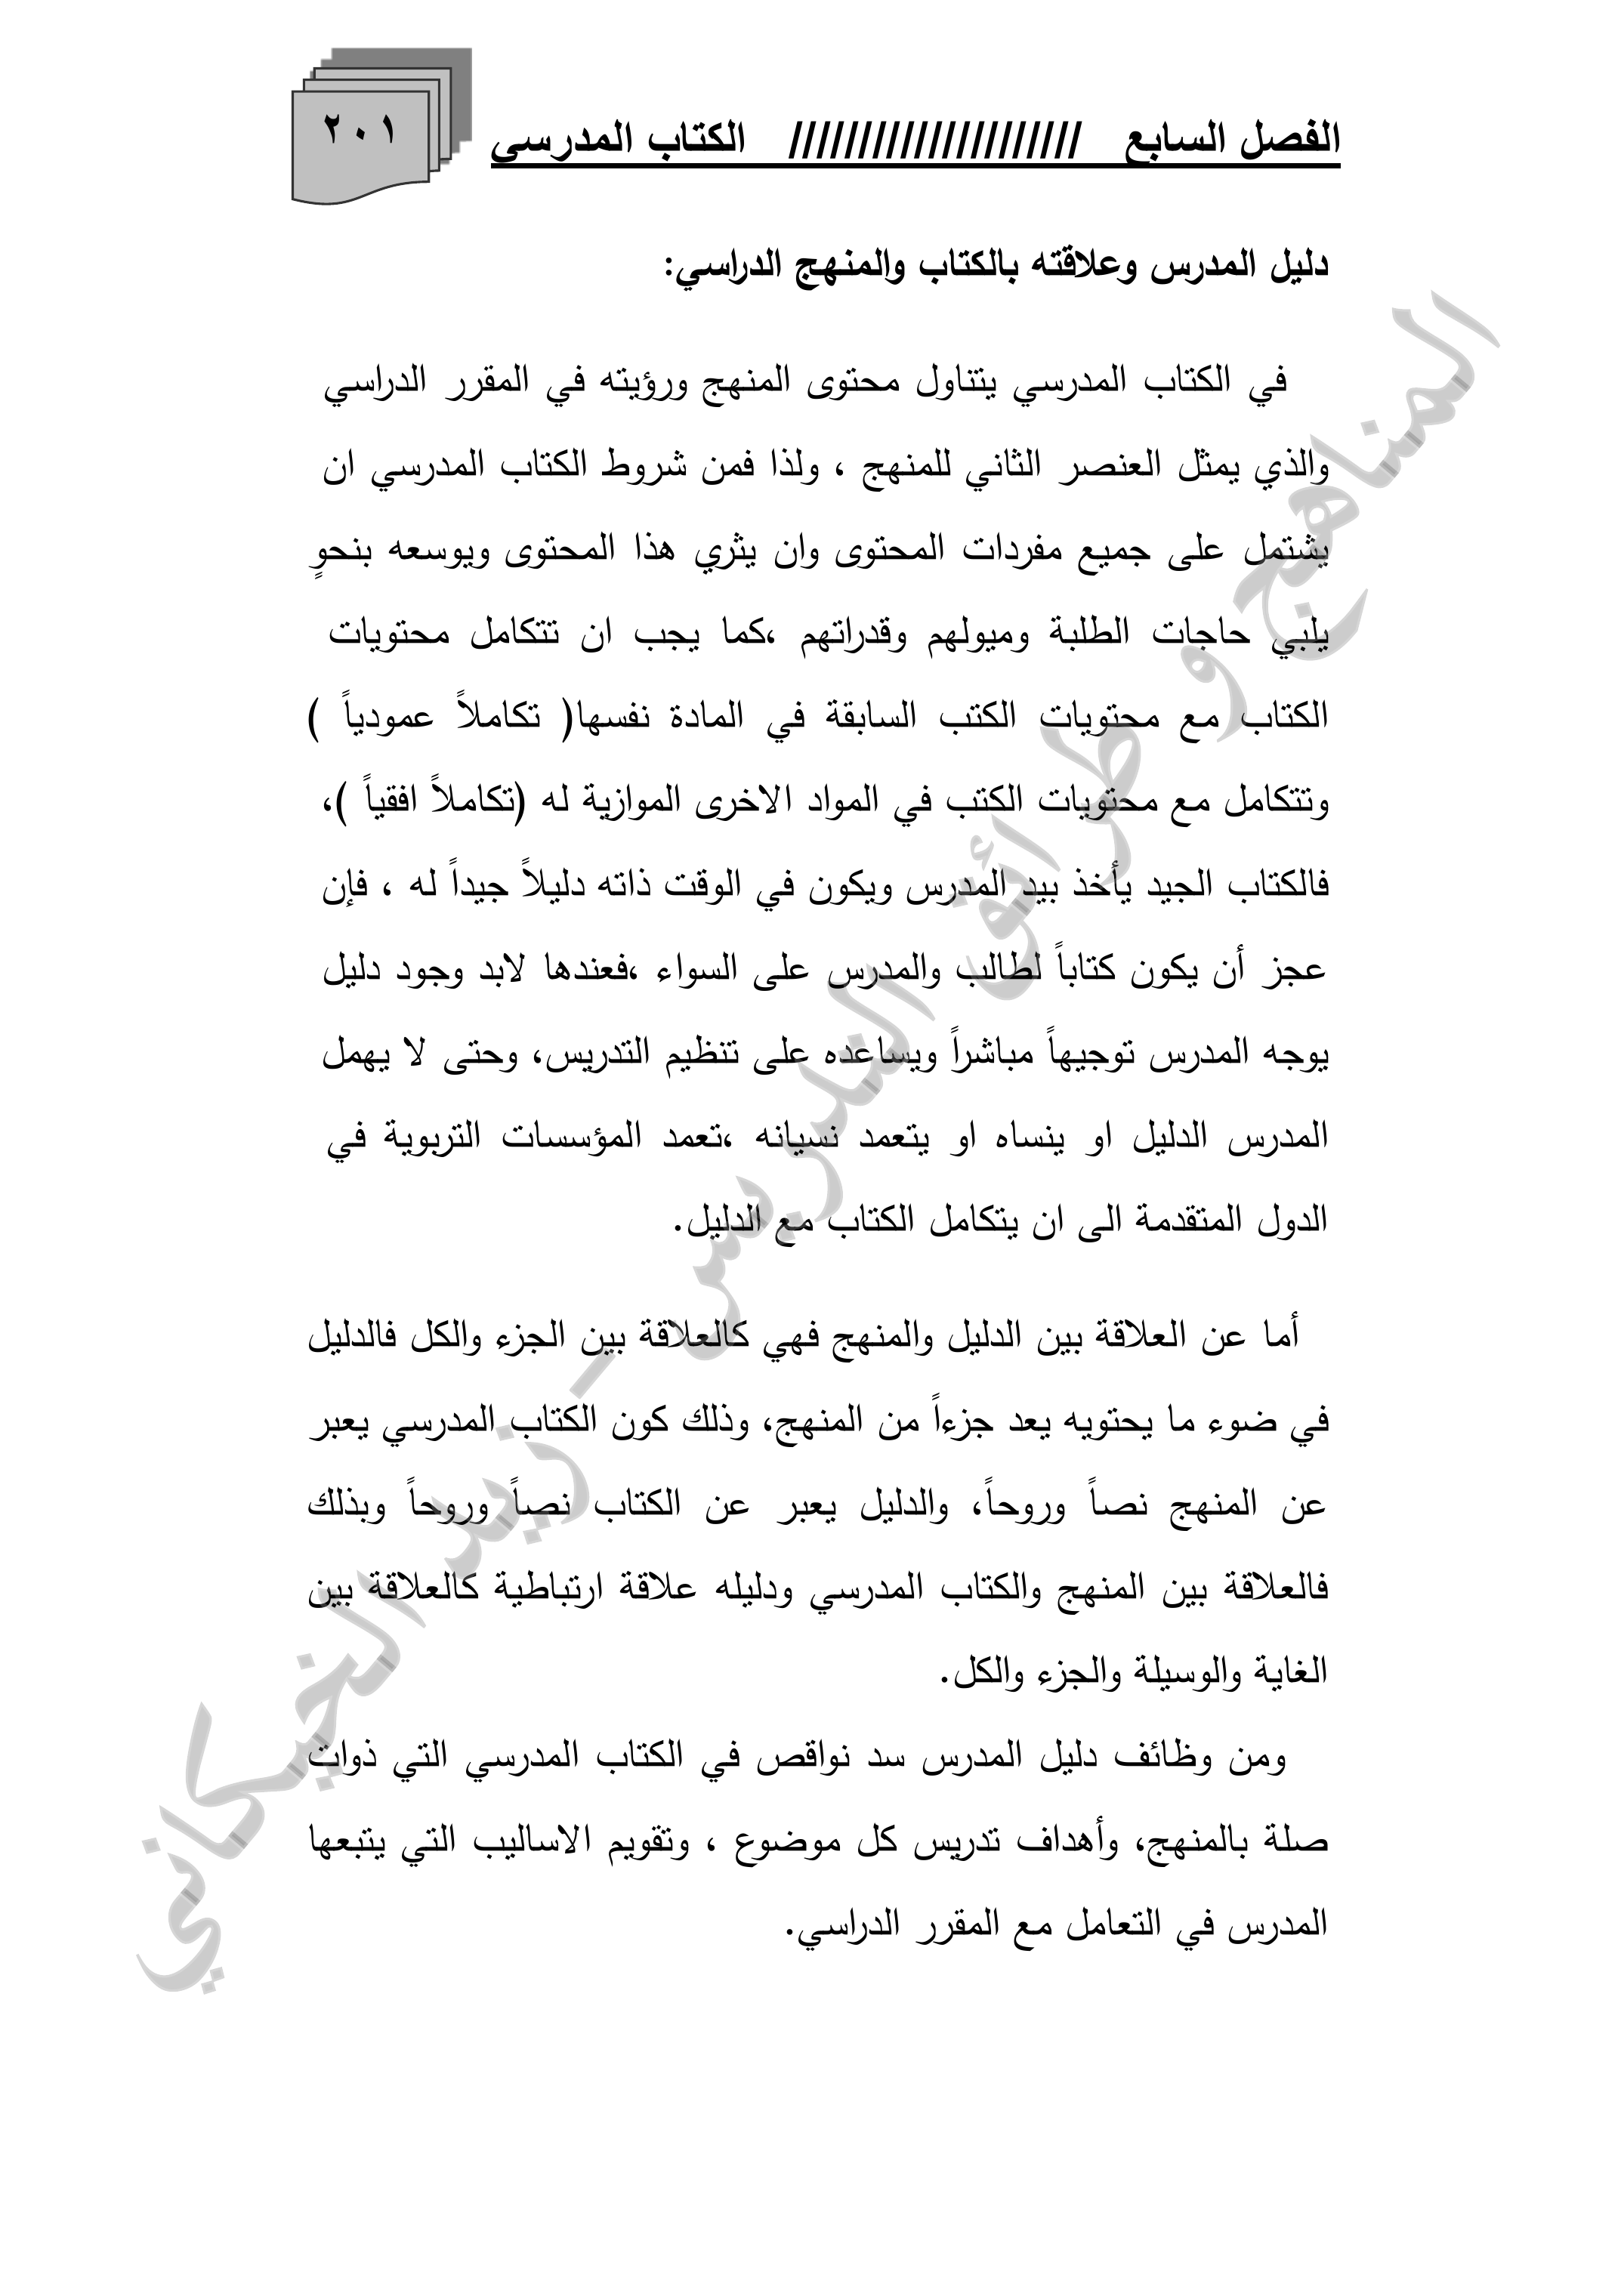 الفصل السابع ///////////////////// الكتاب المدرسي
٢٠١
دليل المدرس وعلاقته بالكتاب والمنهج الدراسي:
في الكتاب المدرسي يتناول محتوى المنهج ورؤيته في المقرر الدراسي
والذي يمثل العنصر الثاني للمنهج ، ولذا فمن شروط الكتاب المدرسي ان
يشتمل على جميع مفردات المحتوى وان يثري هذا المحتوى ويوسعه بنحوٍ
يلبي حاجات الطلبة وميولهم وقدراتهم ،كما يجب ان تتكامل محتويات
الكتاب مع محتويات الكتب السابقة في المادة نفسها( تكاملاً عمودياً )
وتتكامل مع محتويات الكتب في المواد الاخرى الموازية له (تكاملاً افقياً )،
فالكتاب الجيد يأخذ بيد المدرس ويكون في الوقت ذاته دليلاً جيداً له ، فإن
عجز أن يكون كتاباً لطالب والمدرس على السواء ،فعندها لابد وجود دليل
يوجه المدرس توجيهاً مباشراً ويساعده على تنظيم التدريس، وحتى لا يهمل
المدرس الدليل او ينساه او يتعمد نسيانه ،تعمد المؤسسات التربوية في
الدول المتقدمة الى ان يتكامل الكتاب مع الدليل.
أما عن العلاقة بين الدليل والمنهج فهي كالعلاقة بين الجزء والكل فالدليل
في ضوء ما يحتويه يعد جزءاً من المنهج، وذلك كون الكتاب المدرسي يعبر
عن المنهج نصاً وروحاً، والدليل يعبر عن الكتاب نصاً وروحاً وبذلك
فالعلاقة بين المنهج والكتاب المدرسي ودليله علاقة ارتباطية كالعلاقة بين
الغاية والوسيلة والجزء والكل.
ومن وظائف دليل المدرس سد نواقص في الكتاب المدرسي التي ذوات
صلة بالمنهج، وأهداف تدريس كل موضوع ، وتقويم الاساليب التي يتبعها
المدرس في التعامل مع المقرر الدراسي.
المناهج و طرائق التدريس - زيد الخيكاني